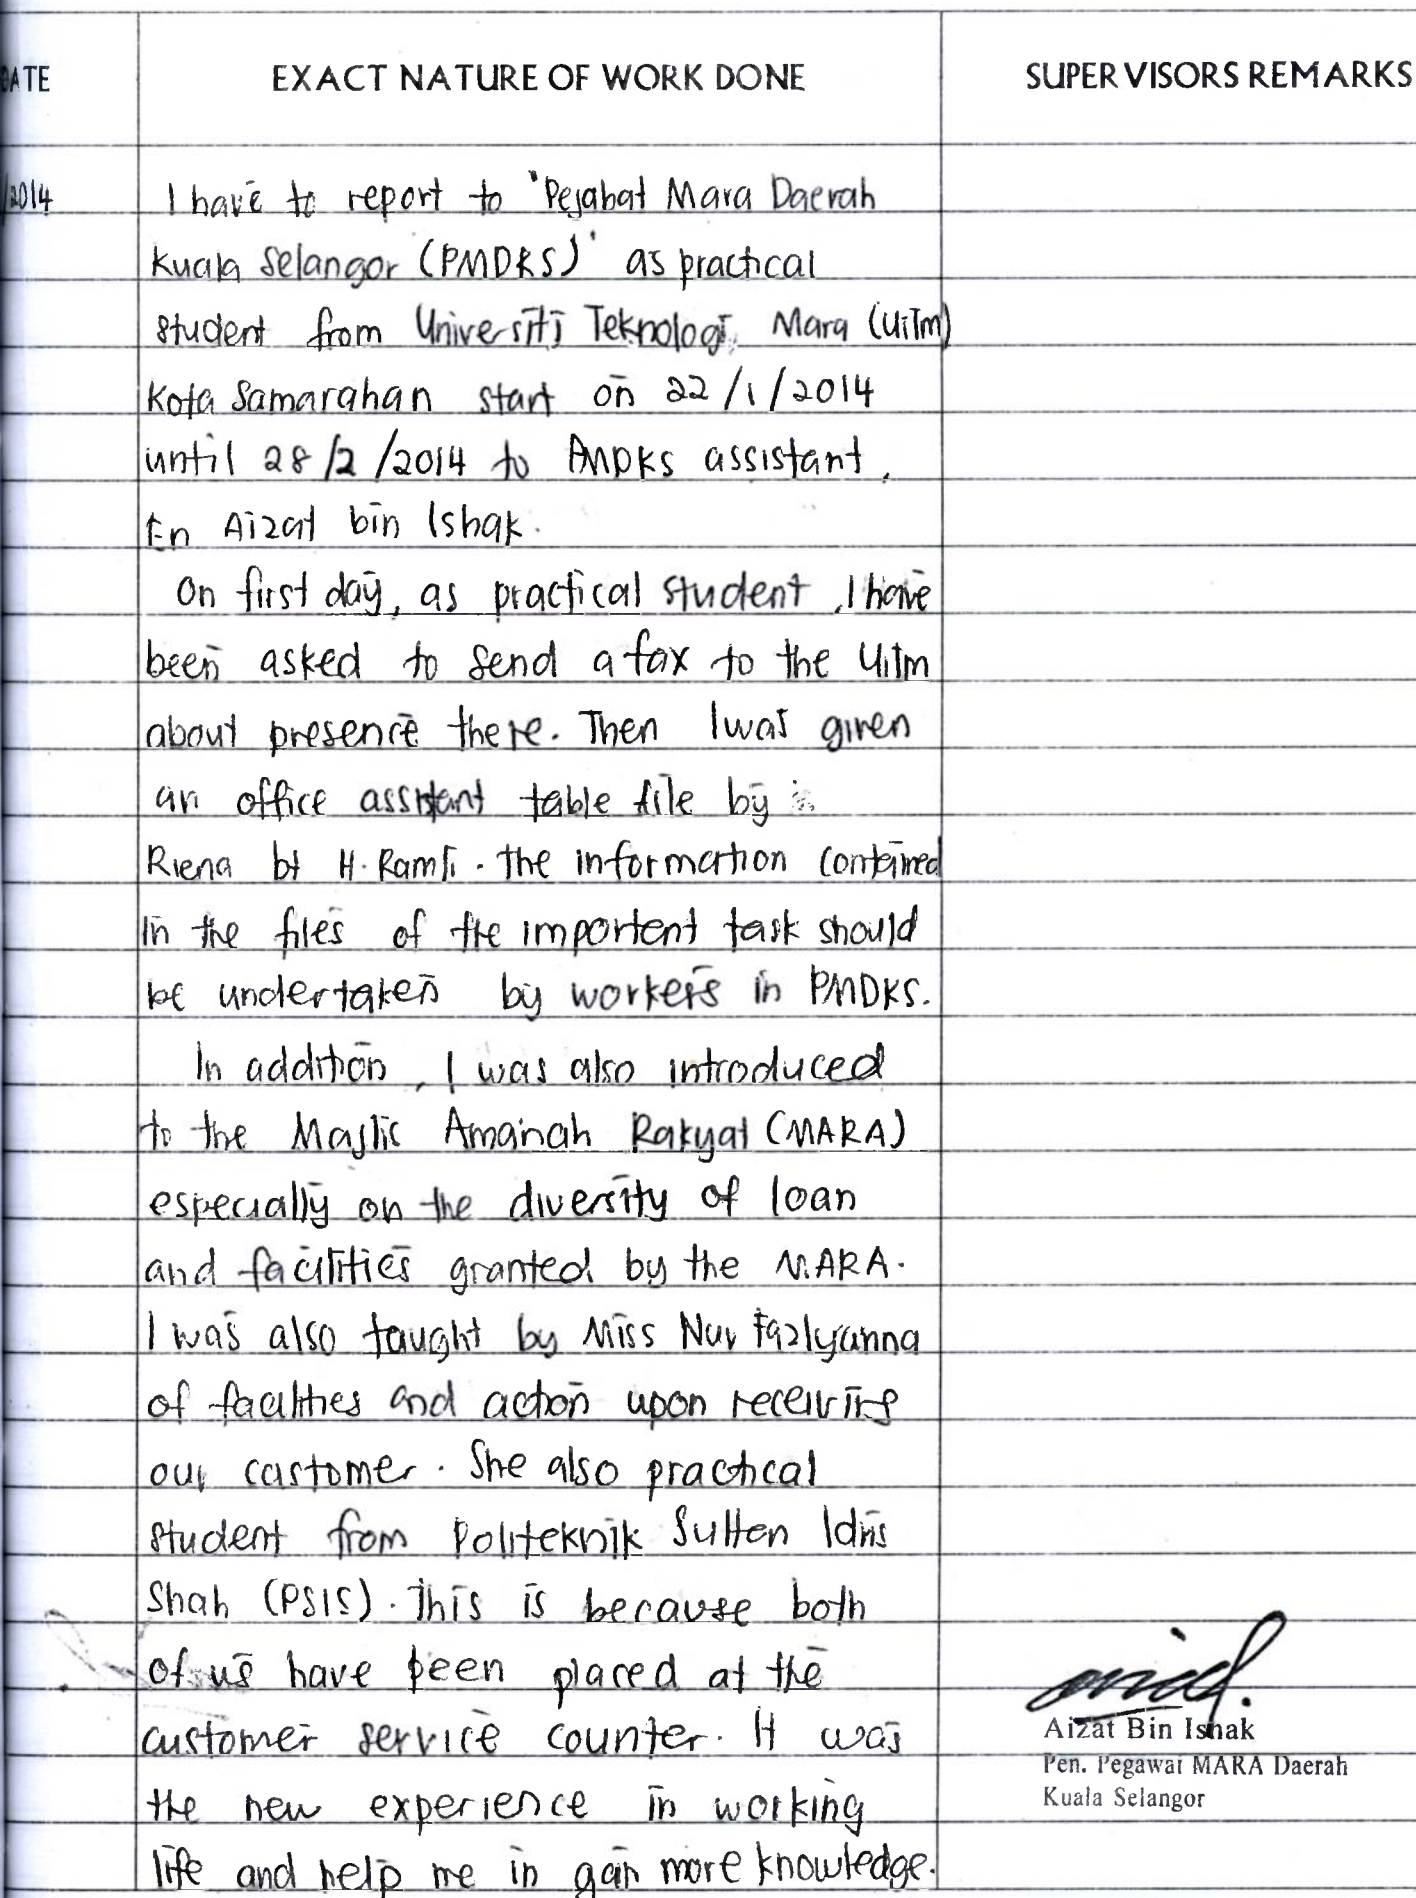 DATE EXACT NATURE OF WORK DONE SUPERVISORS REMARKS
/2014 I have to report to 'Pejabat Mara Daerah
Kuala Selangor (PMDKS)' as practical
student from Universiti Teknologi Mara (UiTm)
Kota Samarahan start on 22/1/2014
until 28/2/2014 to PMDKS assistant,
En Aizat bin Ishak.
On first day, as practical student, I have
been asked to send a fax to the UiTm
about presence there. Then I was given
an office assistant table file by
Riena bt H. Ramli. the information contained
in the files of the importent task should
be undertaken by workers in PMDKS.
In addition, I was also introduced
to the Majlic Amanah Rakyat (MARA)
especially on the diversity of loan
and facilities granted by the MARA.
I was also taught by Miss Nur Fazlyanna
of facilities and action upon receiving
our castomer. She also practical
student from Politeknik Sulten Idris
Shah (PSIS). This is because both
of us have been placed at the
customer service counter. It was
the new experience in working
life and help me in gain more knowledge.
Aizat Bin Ishak
Pen. Pegawai MARA Daerah
Kuala Selangor